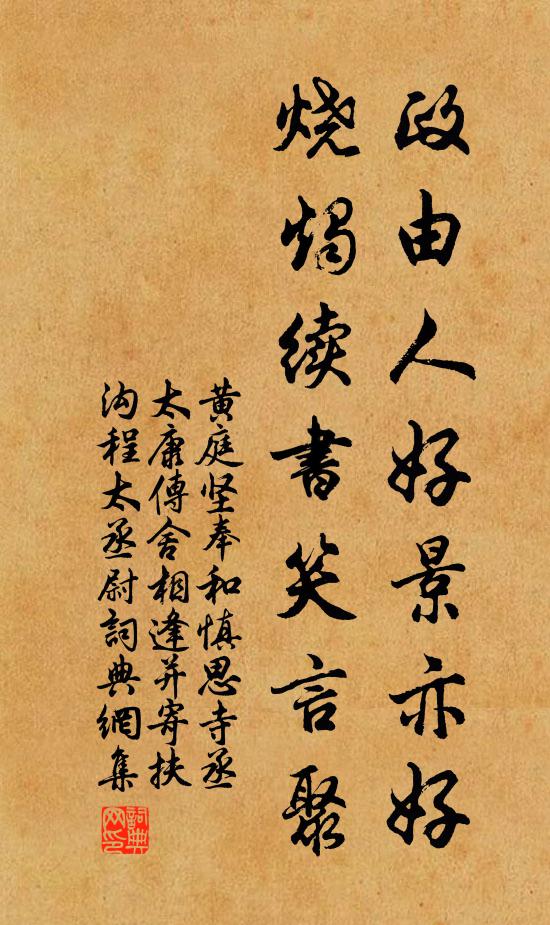 政由人好景亦好
烧烛续书笑言聚
黄庭坚奉和慎思寺丞
太康傳舍相逢并寄扶
沟程太丞尉詞典網集
詞典网印